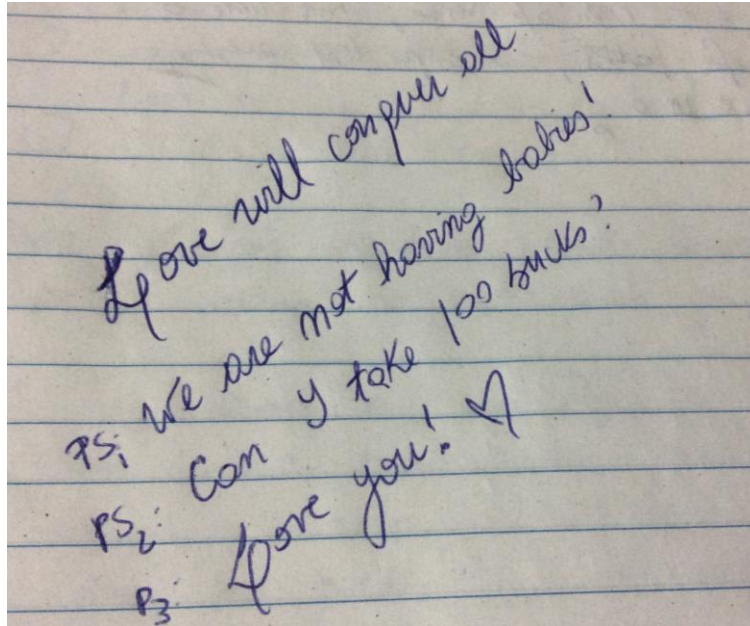 Love will conquer all
PS1 We are not having babies!
PS2: Can I take 100 bucks?
P3: Love you! ♡